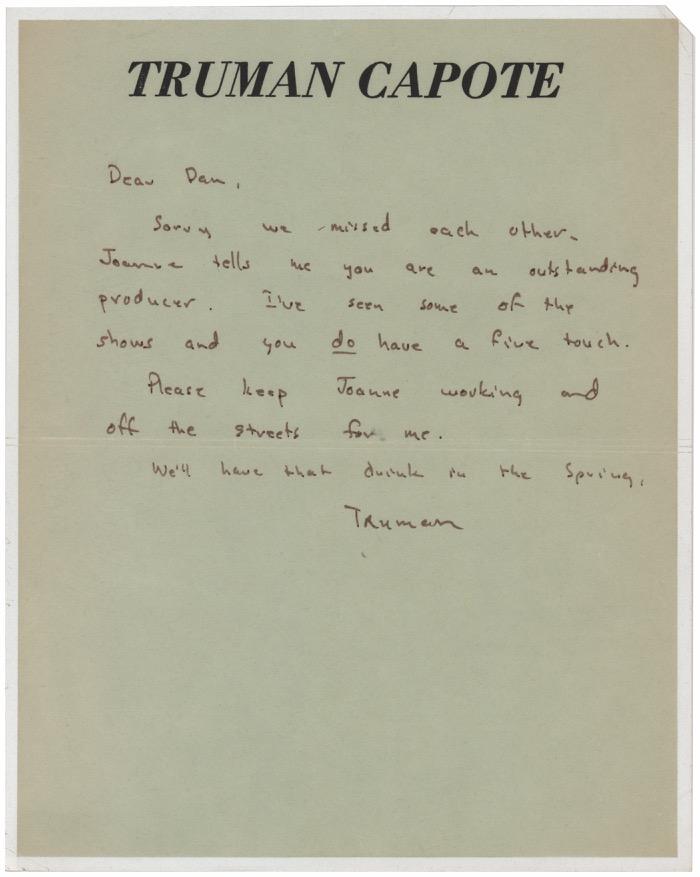 TRUMAN CAPOTE
Dear Dan,
Sorry we missed each other.
Joanne tells me you are an outstanding
producer. I've seen some of the
shows and you do have a fine touch.
Please keep Joanne working and
off the streets for me.
We'll have that drink in the Spring.
Truman